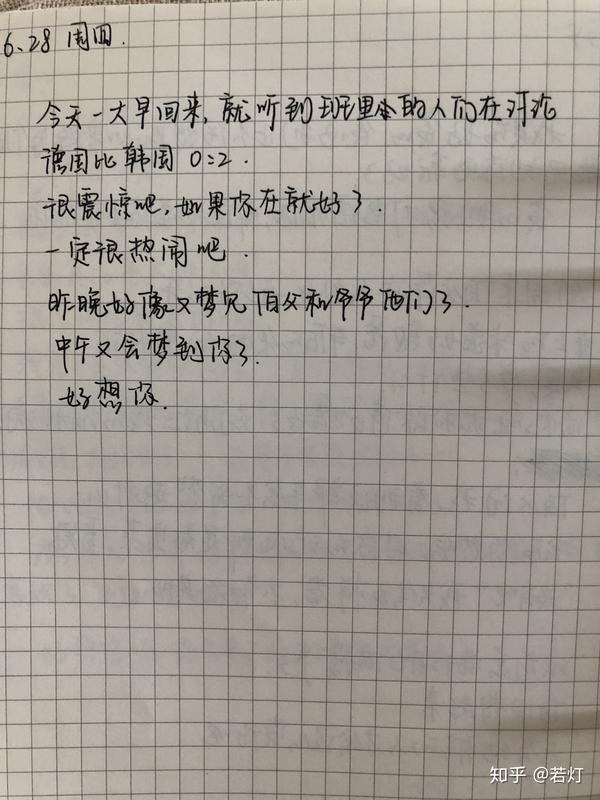 6.28 周四.
今天一大早回来,就听到班里的人们在讨论
德国比韩国 0:2.
很震惊吧,如果你在就好了.
一定很热闹吧.
昨晚好像又梦见伯父和爷爷他们了.
中午又会梦到你了.
好想你.
知乎 @若灯